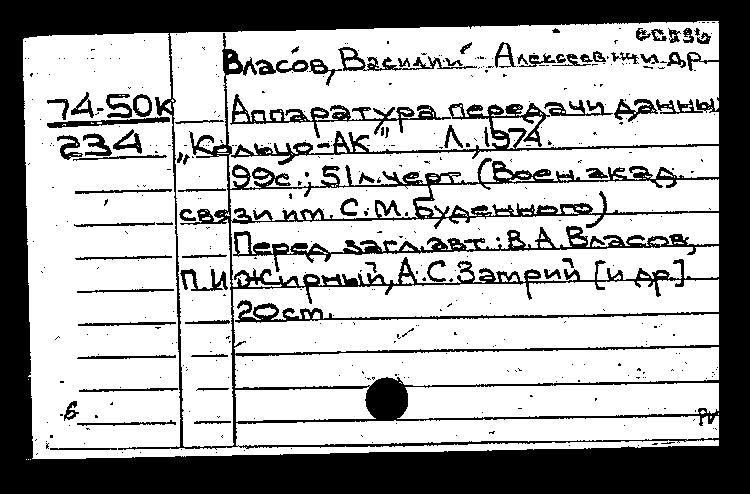 Власов, Василий Алексеевич и др.
74-50к Аппаратура передачи данны
234 „Кольцо-АК" Л., 1974.
99с.; 51л.черт. (Воен. акад.
связи им. С.М.Буденного).
Перед загл. авт.: В.А.Власов,
П.И.Жирный, А.С.Затрий [и др.].
20см.